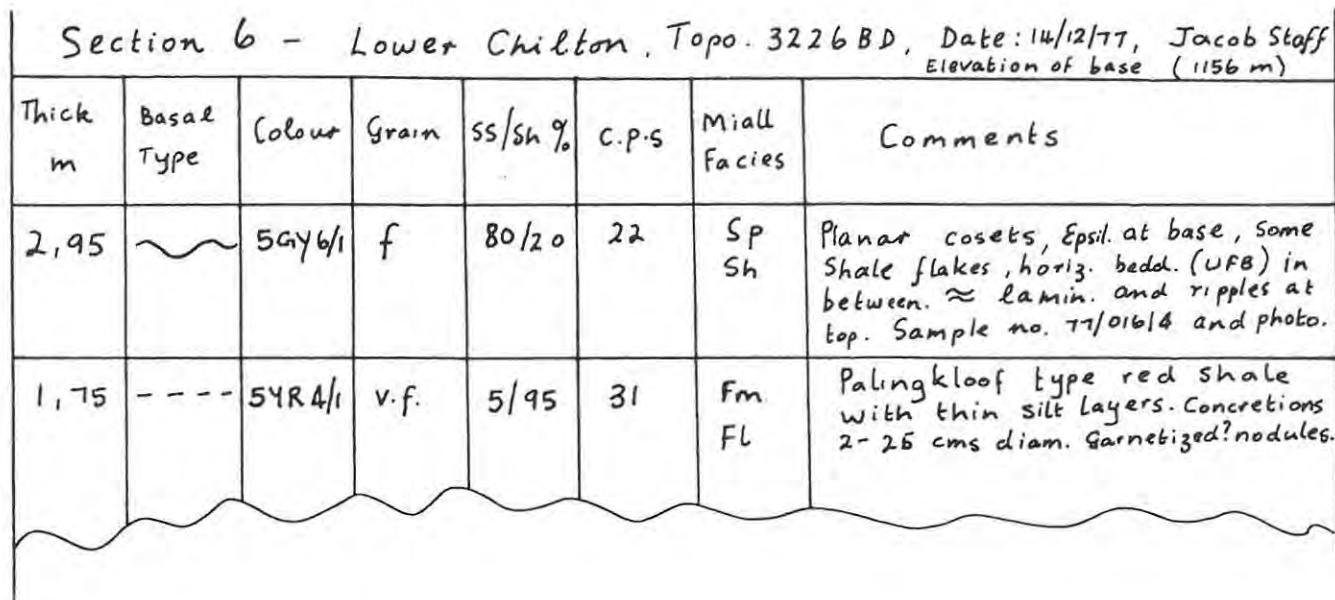 Section 6 - Lower Chilton, Topo. 3226 BD, Date: 14/12/77, Jacob Staff
Elevation of base (1156 m)
Thick m
Basal Type
Colour
Grain
SS/Sh %
C.P.S
Miall Facies
Comments
2,95
5GY6/1
f
80/20
22
Sp
Sh
Planar cosets, Epsil. at base, some
Shale flakes, horiz. bedd. (UFB) in
between. ≈ lamin. and ripples at
top. Sample no. 77/016/4 and photo.
1,75
----
5YR4/1
v.f.
5/95
31
Fm
Fl
Palingkloof type red shale
with thin silt layers. Concretions
2-25 cms diam. Garnetized? nodules.